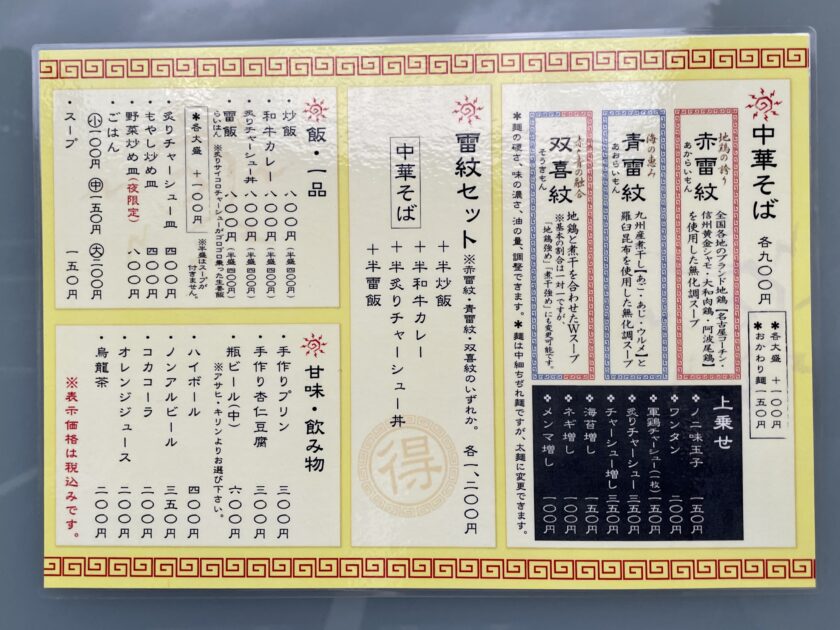 中華そば 各九〇〇円
＊各大盛 ＋一〇〇円
＊おかわり麺 一五〇円
地鶏の誇り
赤雷紋
あからいもん
全国各地のブランド地鶏【名古屋コーチン・
信州黄金シャモ・大和肉鶏・阿波尾鶏】
を使用した無化調スープ
海の恵み
青雷紋
あおらいもん
九州産煮干し【あご・あじ・ウルメ】と
羅臼昆布を使用した無化調スープ
赤・青の融合
双喜紋
そうきもん
地鶏と煮干を合わせたWスープ
※基本の割合は一対一ですが、
「地鶏強め」「煮干強め」にも変更可能です。
上乗せ
ノニ味玉子 一五〇円
ワンタン 二〇〇円
軍鶏チャーシュー(一枚) 一五〇円
炙りチャーシュー 三五〇円
チャーシュー増し 三五〇円
海苔増し 一五〇円
ネギ増し 一〇〇円
メンマ増し 一〇〇円
＊麺の硬さ、味の濃さ、油の量、調整できます。 ＊麺は中細ちぢれ麺ですが、太麺に変更できます。
雷紋セット ※赤雷紋・青雷紋・双喜紋のいずれか。 各一、二〇〇円
中華そば
＋半炒飯
＋半和牛カレー
＋半炙りチャーシュー丼
＋半雷飯
得
飯・一品
・炒飯 八〇〇円(半盛 四〇〇円)
・和牛カレー 八〇〇円(半盛 四〇〇円)
・炙りチャーシュー丼 八〇〇円(半盛 四〇〇円)
・雷飯 八〇〇円(半盛 四〇〇円)
らいはん ※炙りサイコロチャーシューがゴロゴロ乗った生姜飯
＊各大盛 ＋一〇〇円
※半盛はスープが
付きません。
・炙りチャーシュー皿 四〇〇円
・もやし炒め皿 四〇〇円
・野菜炒め皿(夜限定) 八〇〇円
・ごはん
小 一〇〇円 中 一五〇円 大 二〇〇円
・スープ 一五〇円
甘味・飲み物
・手作りプリン 三〇〇円
・手作り杏仁豆腐 三〇〇円
・瓶ビール(中) 六〇〇円
※アサヒ・キリンよりお選び下さい。
・ハイボール 四〇〇円
・ノンアルビール 三五〇円
・コカコーラ 二〇〇円
・オレンジジュース 二〇〇円
・烏龍茶 二〇〇円
※表示価格は税込みです。